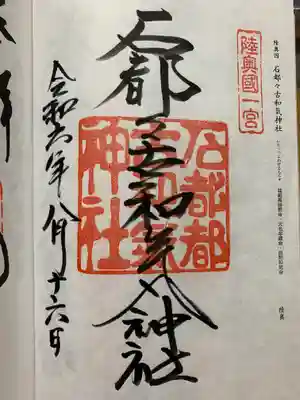 陸奥国 石都々古和気神社
陸奥國一宮
石都々古和気神社
石都都
古和氣
神社
令和六年八月十六日